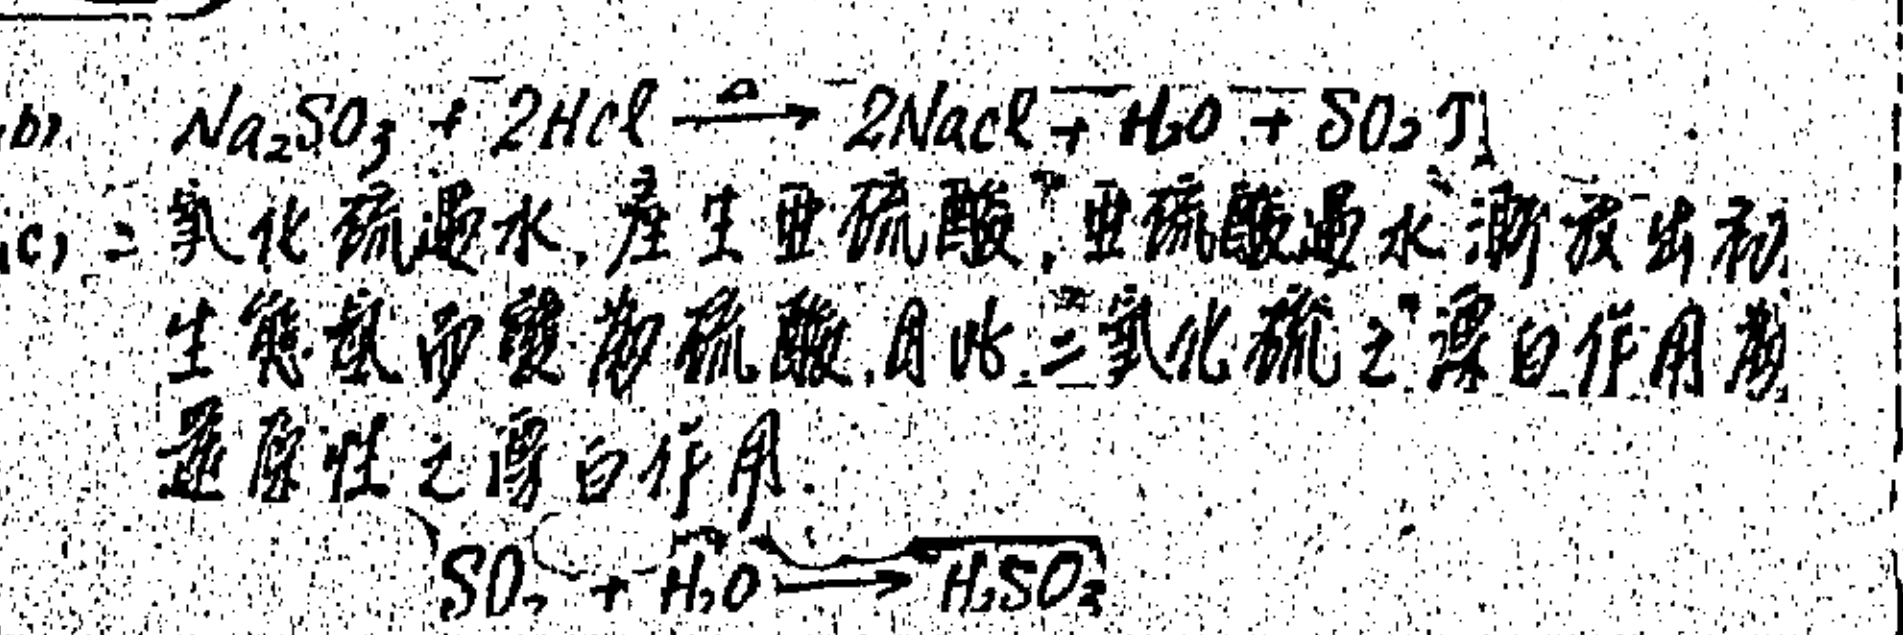 (b) Na₂SO₃ + 2HCl —△→ 2NaCl + H₂O + SO₂↑
(c) 二氧化硫遇水,產生亚硫酸,亚硫酸遇水漸放出初
生態氫而變為硫酸,因此二氧化硫之漂白作用為
還原性之漂白作用.
SO₂ + H₂O → H₂SO₃